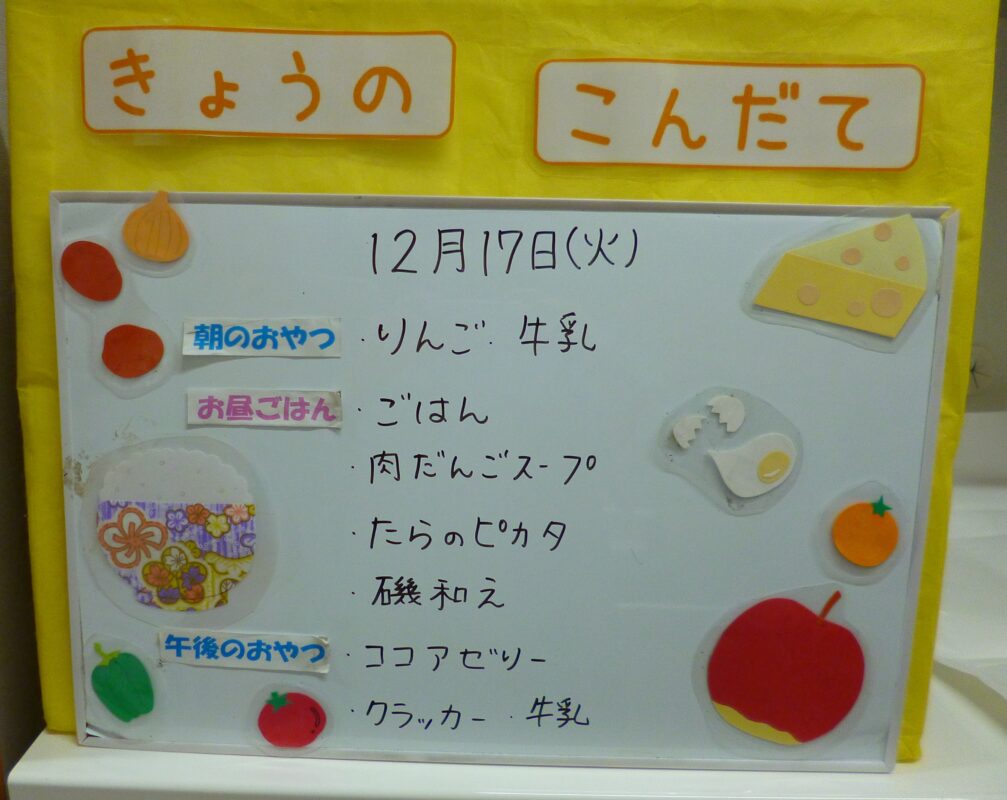 きょうの こんだて
12月17日(火)
朝のおやつ ・りんご・ 牛乳
お昼ごはん ・ごはん
・肉だんごスープ
・たらのピカタ
・磯和え
午後のおやつ ・ココアゼリー
・クラッカー ・牛乳